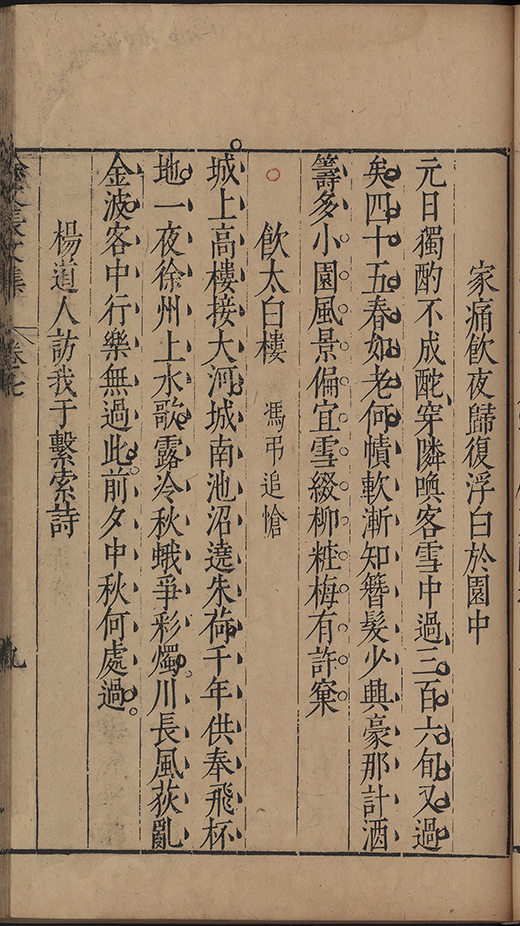 家痛飲夜歸復浮白於園中
元日獨酌不成酡穿隣喚客雪中過三百六旬又過
矣四十五春如老何幘軟漸知簪髮少興豪那計酒
籌多小園風景偏宜雪綴柳粧梅有許窠
飲太白樓 馮弔追愴
城上高樓接大河城南池沼遶朱荷千年供奉飛杯
地一夜徐州上水歌露冷秋蛾爭彩燭川長風荻亂
金波客中行樂無過此前夕中秋何處過
楊道人訪我于繫索詩
長文集 卷七
九